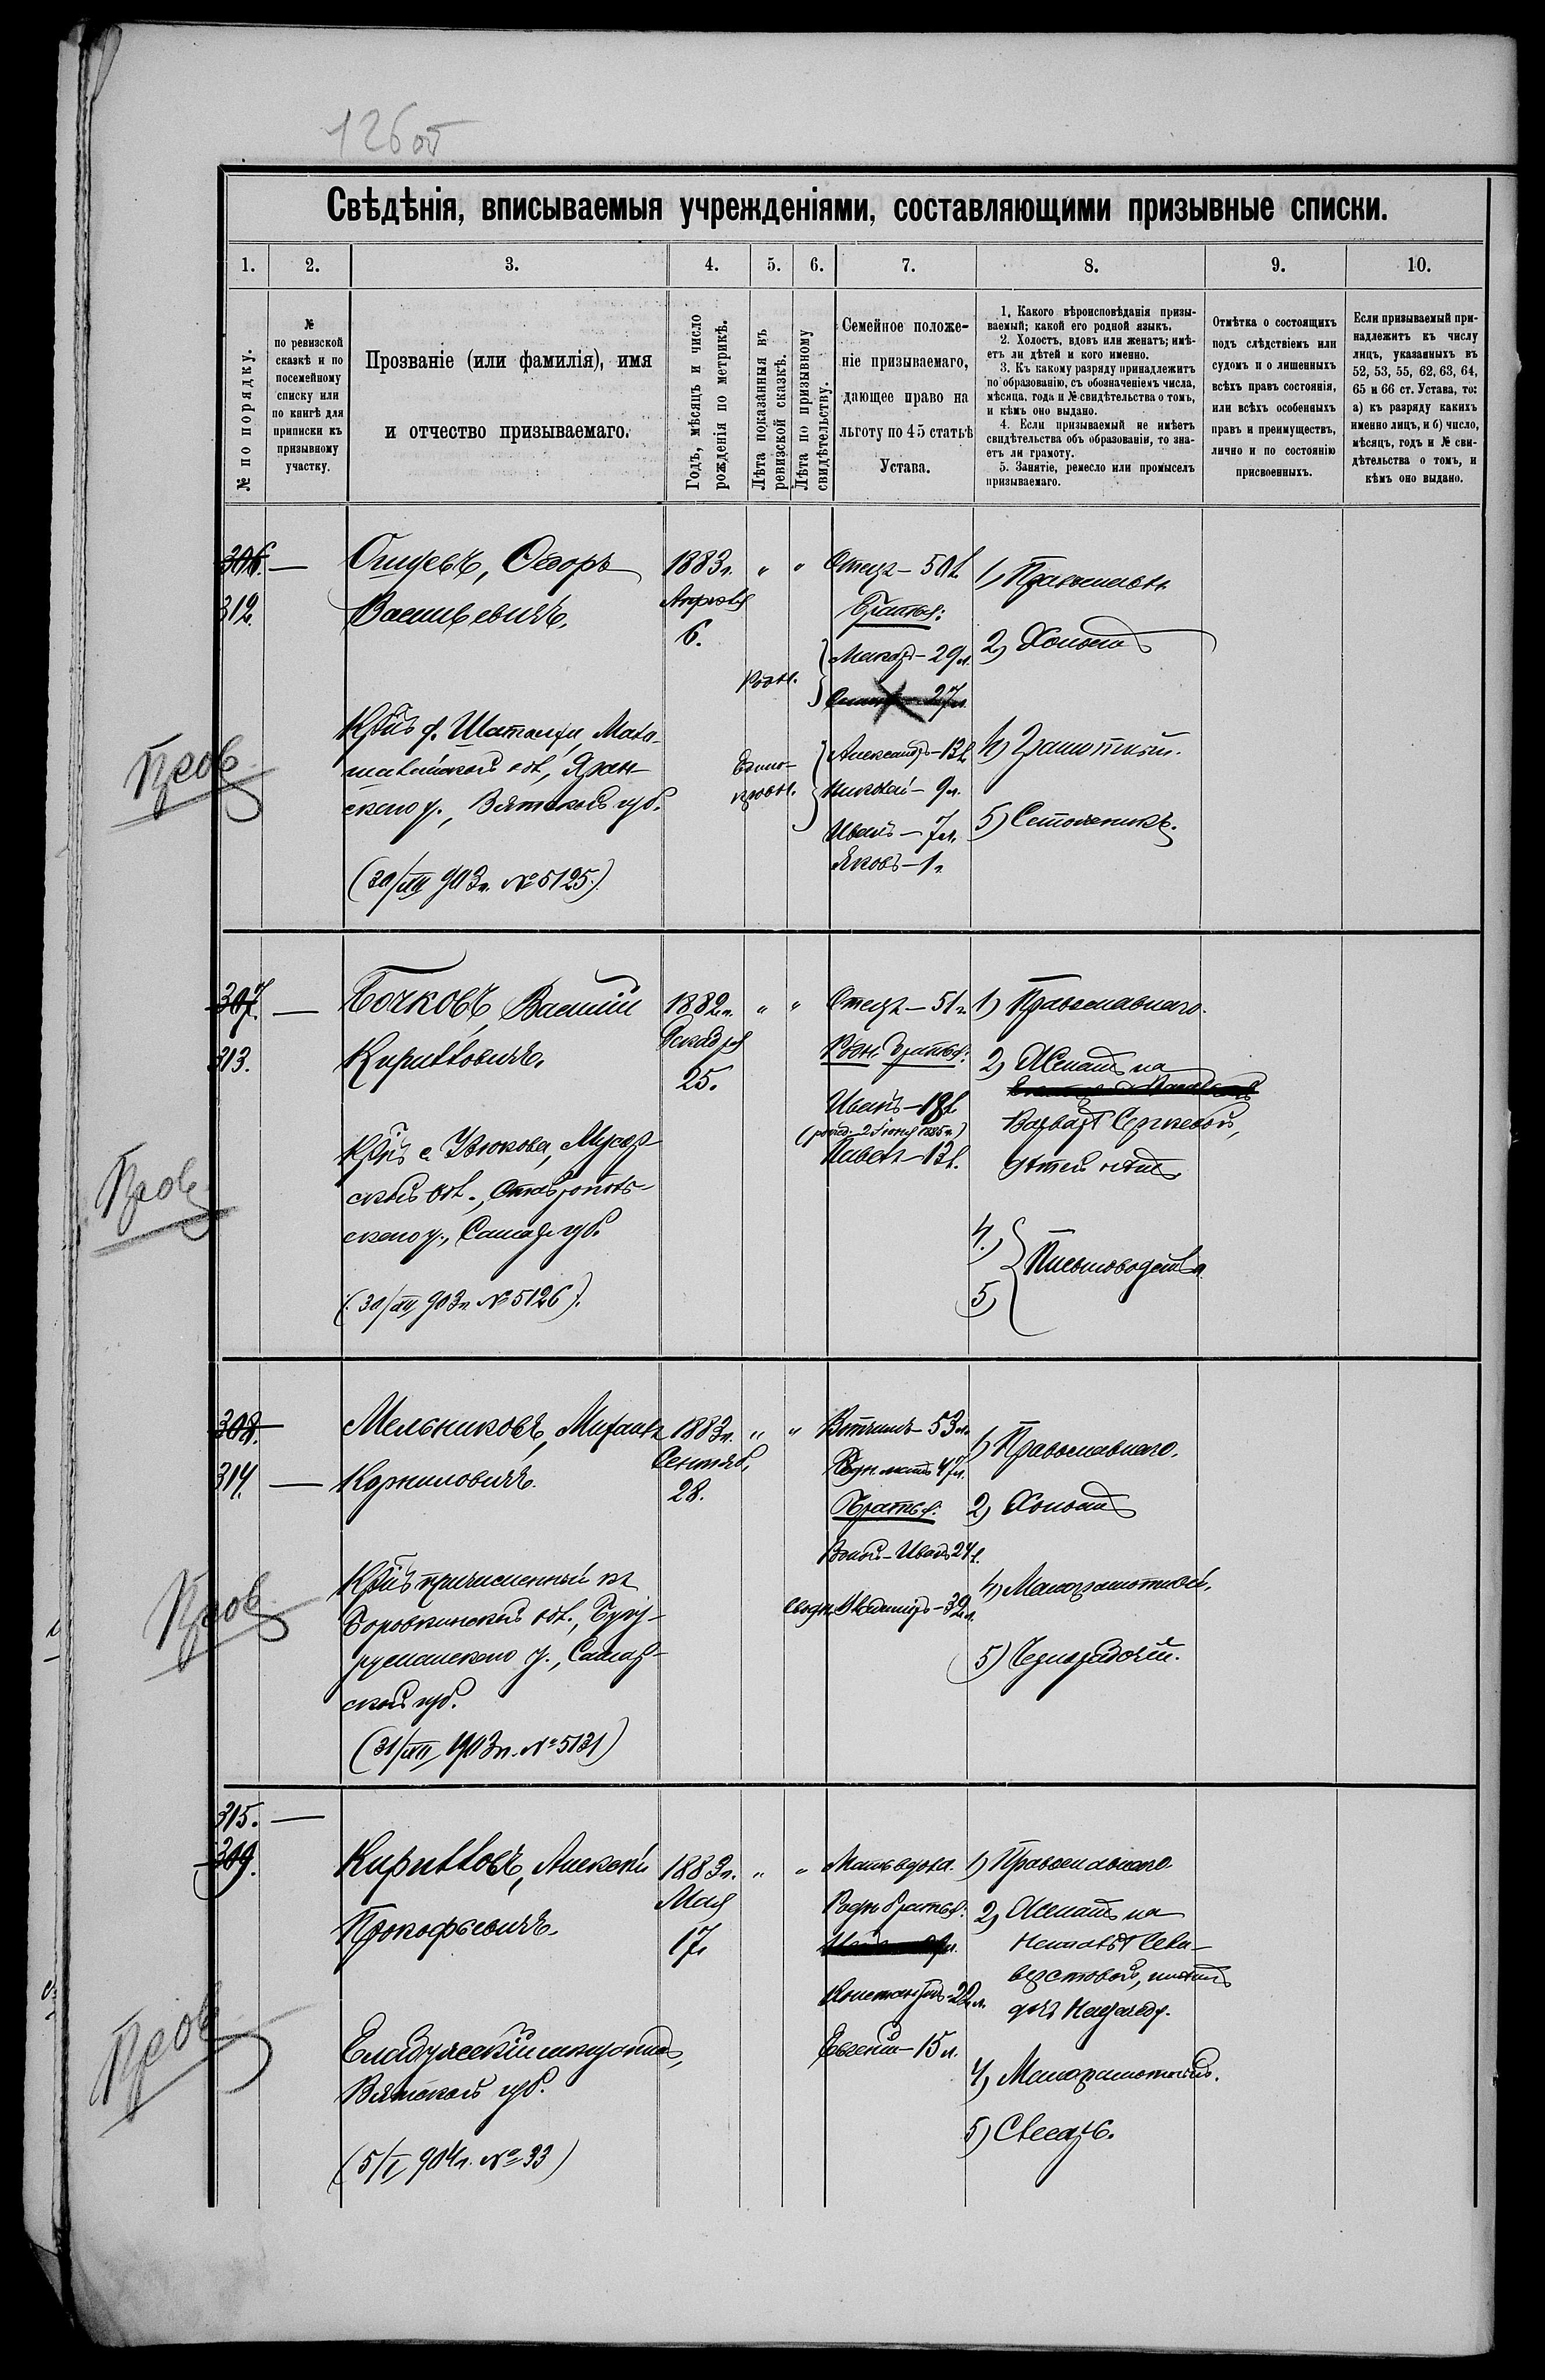 126 об
Свѣдѣнія, вписываемыя учрежденіями, составляющими призывные списки.
1. 2. 3. 4. 5. 6. 7. 8. 9. 10.
№ по порядку.
№
по ревизской
сказкѣ и по
посемейному
списку или
по книгѣ для
приписки къ
призывному
участку.
Прозваніе (или фамилія), имя
и отчество призываемаго.
Годъ, мѣсяцъ и число
рожденія по метрикѣ.
Лѣта показанныя въ
ревизской сказкѣ.
Лѣта по призывному
свидѣтельству.
Семейное положе-
ніе призываемаго,
дающее право на
льготу по 45 статьѣ
Устава.
1. Какого вѣроисповѣданія призы-
ваемый; какой его родной языкъ.
2. Холостъ, вдовъ или женатъ; имѣ-
етъ ли дѣтей и кого именно.
3. Къ какому разряду принадлежитъ
по образованію, съ обозначеніемъ числа,
мѣсяца, года и № свидѣтельства о томъ,
и кѣмъ оно выдано.
4. Если призываемый не имѣетъ
свидѣтельства объ образованіи, то зна-
етъ ли грамоту.
5. Занятіе, ремесло или промыселъ
призываемаго.
Отмѣтка о состоящихъ
подъ слѣдствіемъ или
судомъ и о лишенныхъ
всѣхъ правъ состоянія,
или всѣхъ особенныхъ
правъ и преимуществъ,
лично и по состоянію
присвоенныхъ.
Если призываемый при-
надлежитъ къ числу
лицъ, указанныхъ въ
52, 53, 55, 62, 63, 64,
65 и 66 ст. Устава, то:
а) къ разряду какихъ
именно лицъ, и б) число,
мѣсяцъ, годъ и № сви-
дѣтельства о томъ, и
кѣмъ оно выдано.
306. —
312.
Ѳедоръ
Васильевичъ.
Кр-нъ д.
Вятской губ.
(30/XII 903 г. № 5125.)
1883 г.
Апрѣля
6.
" "
Отецъ — 50 л.
Братья:
родн.
Макаръ — 29 л.
27 л.
Едино-
кровн.
Александръ — 13 л.
Николай — 9 л.
Иванъ — 7 л.
Яковъ — 1 г.
1) Православн.
2) Холостъ
4) Грамотный.
5)
Пров
307. —
313.
Бочковъ, Василій
Кирилловичъ.
Кр-нъ с. Узюкова, Мусор-
ской вол., Ставрополь-
скаго у., Самар. губ.
(30/XII 903 г. № 5126).
1882 г.
Декабря
25.
" "
Отецъ — 51 г.
Родн. братья:
Иванъ — 18 л.
Павелъ — 13 л.
1) Православнаго.
2) Женатъ на
Варварѣ Сергѣевой,
дѣтей нѣтъ
4.)
5) Письмоводства
Пров
308.
314. —
Мельниковъ, Михаилъ
Корниловичъ.
Кр-нъ причисленный къ
Боровкинской вол., Бугу-
русланскаго у., Самар-
ской губ.
(31/XII 1903 г. № 5131)
1883 г.
Сентяб.
28.
" "
Вотчимъ — 53 л.
Родн. мать 47 л.
Братья:
Иванъ 24 л.
Сводн. Владимиръ — 32 л.
1) Православнаго.
2) Холостъ
4) Малограмотный.
5) Чернорабочій.
Пров
315. —
309.
Кирилловъ, Алексѣй
Прокофьевичъ.
Елабужскій мѣщанинъ,
Вятской губ.
(5/I 904 г. № 33)
1883 г.
Мая
17.
" "
Мать вдова.
Родн. братья:
Константинъ — 22 л.
Евгеній — 15 л.
1) Православнаго
2) Женатъ на
дочь
4) Малограмотный.
5) Слесарь.
Пров